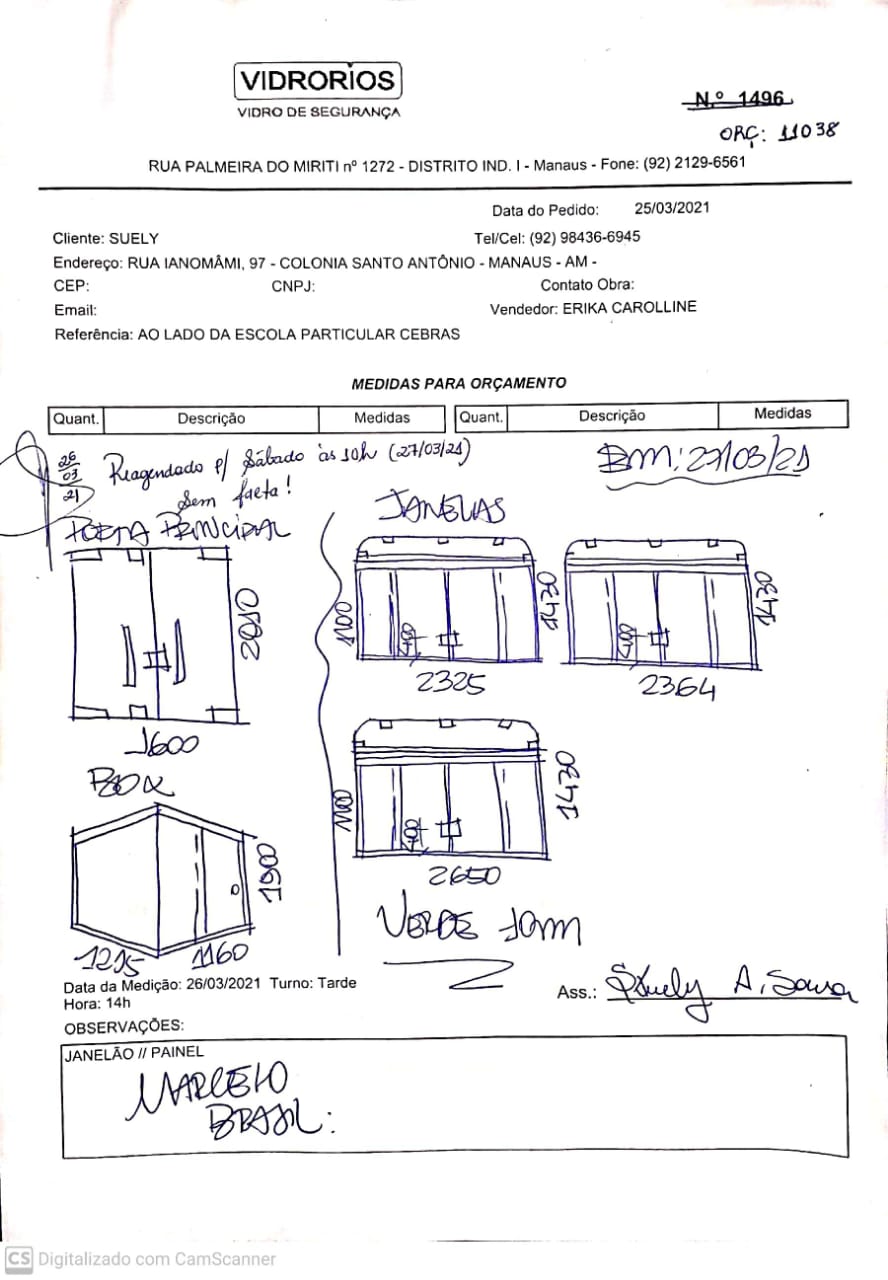 VIDRORIOS
VIDRO DE SEGURANÇA
N.º 1496
ORÇ: 11038
RUA PALMEIRA DO MIRITI nº 1272 - DISTRITO IND. I - Manaus - Fone: (92) 2129-6561
Data do Pedido: 25/03/2021
Cliente: SUELY Tel/Cel: (92) 98436-6945
Endereço: RUA IANOMÂMI, 97 - COLONIA SANTO ANTÔNIO - MANAUS - AM -
CEP: CNPJ: Contato Obra:
Email: Vendedor: ERIKA CAROLLINE
Referência: AO LADO DA ESCOLA PARTICULAR CEBRAS
MEDIDAS PARA ORÇAMENTO
Quant. Descrição Medidas Quant. Descrição Medidas
26/03/21 Reagendado p/ Sábado às 10h (27/03/21)
Sem falta!
BM: 27/03/21
PORTA PRINCIPAL
2010
1600
JANELAS
1100
400
1430
2325
400
1430
2364
1100
400
1430
2650
BOX
1900
1215
1160
VERDE 10mm
Data da Medição: 26/03/2021 Turno: Tarde
Hora: 14h
Ass.: Suely A. Sousa
OBSERVAÇÕES:
JANELÃO // PAINEL
MARCELO
BRASIL:
CS Digitalizado com CamScanner